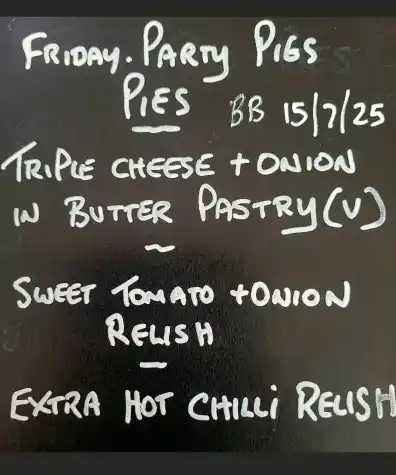 FRIDAY. PARTY PIGS
PIES BB 15/7/25
TRIPLE CHEESE + ONION
IN BUTTER PASTRY (V)
~
SWEET TOMATO + ONION
RELISH
EXTRA HOT CHILLI RELISH